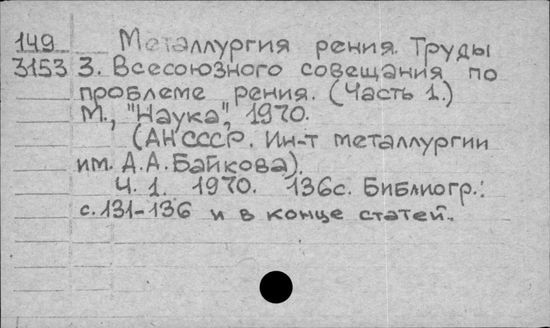 149 Металлургия рения. Труды
3153 3. Всесоюзного совещания по
проблеме рения. (Часть 1.)
М., "Наука", 1970.
(АН СССР. Ин-т металлургии
им. А.А.Байкова).
Ч. 1. 1970. 136с. Библиогр.:
с.131-136 и в конце статей.